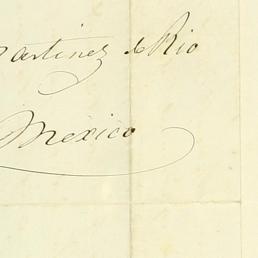 Martinez de Rio
Mexico